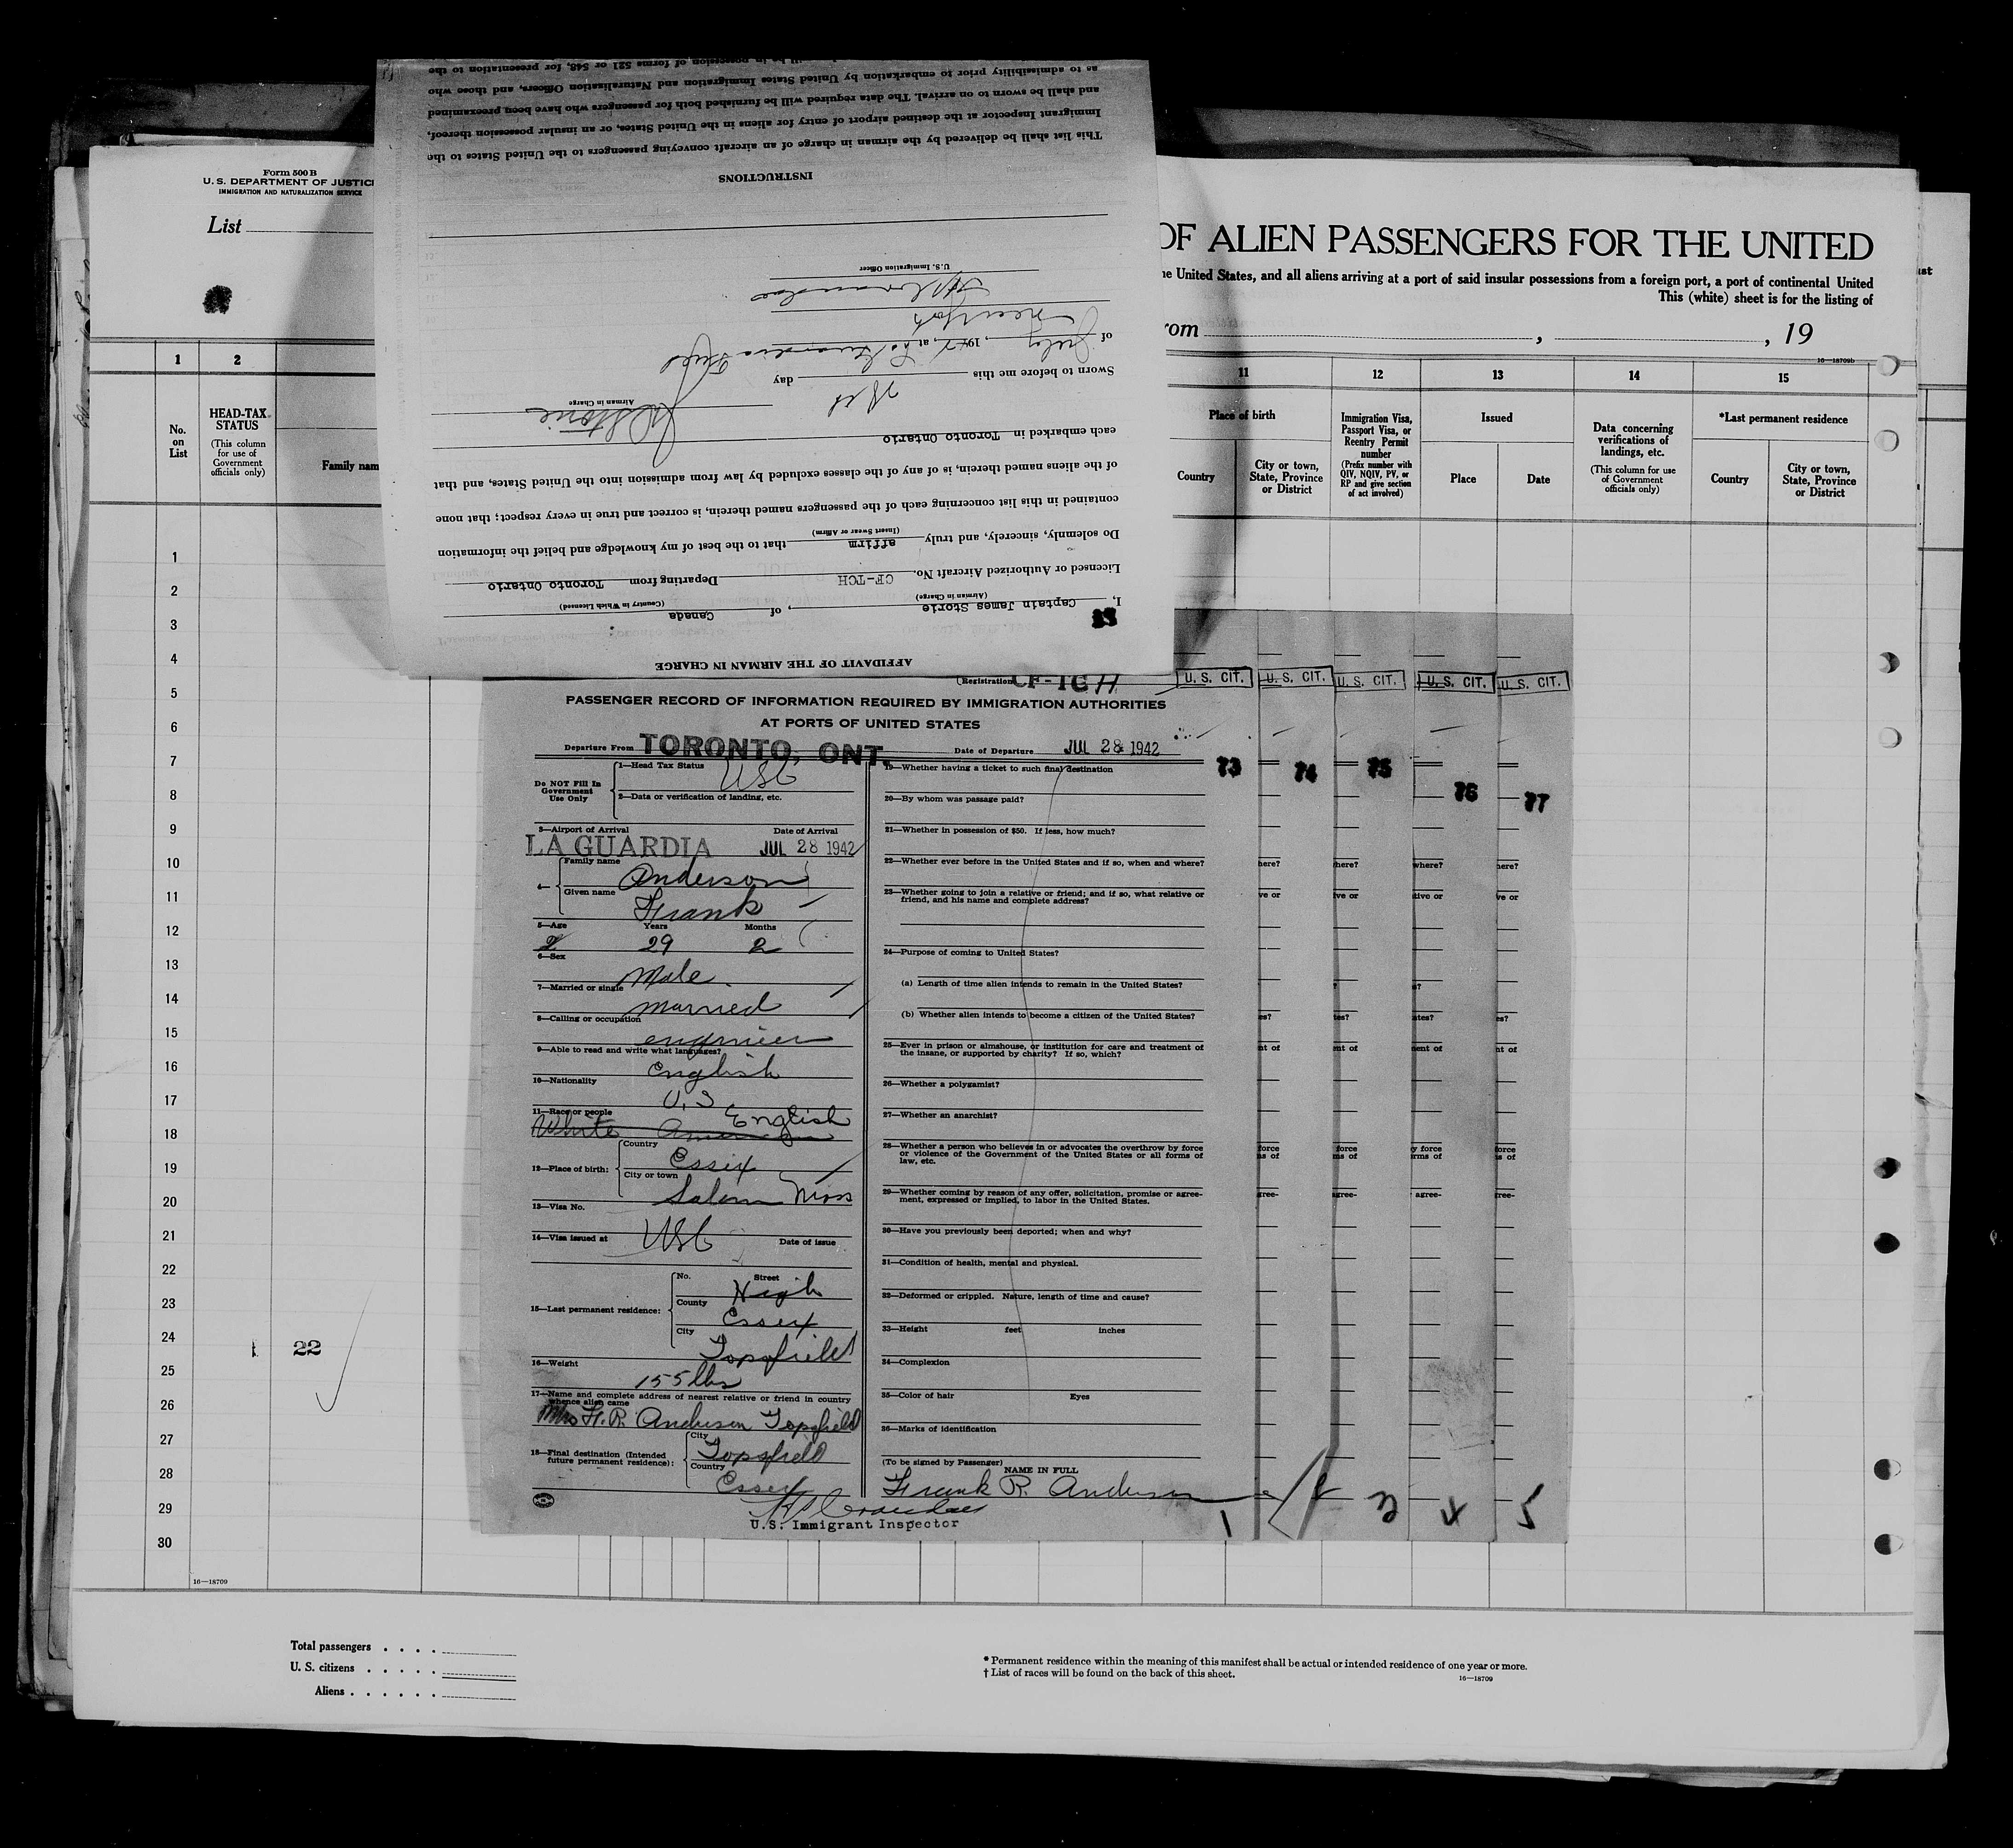 Form 500 B
U. S. DEPARTMENT OF JUSTIC
IMMIGRATION AND NATURALIZATION SERVICE
List
OF ALIEN PASSENGERS FOR THE UNITED
he United States, and all aliens arriving at a port of said insular possessions from a foreign port, a port of continental United
This (white) sheet is for the listing of
rom , , 19
16—18709b
1 2 11 12 13 14 15
No. on List
HEAD-TAX STATUS
(This column for use of Government officials only)
Family nam
Place of birth
Country
City or town, State, Province or District
Immigration Visa, Passport Visa, or Reentry Permit number
(Prefix number with QIV, NQIV, PV, or RP and give section of act involved)
Issued
Place
Date
Data concerning verifications of landings, etc.
(This column for use of Government officials only)
*Last permanent residence
Country
City or town, State, Province or District
1
2
3
4
5
6
7
8
9
10
11
12
13
14
15
16
17
18
19
20
21
22
23
24
25
26
27
28
29
30
22
16—18709
AFFIDAVIT OF THE AIRMAN IN CHARGE
I, Captain James Storie, of Canada
(Airman in Charge) (Country in Which Licensed)
Licensed or Authorized Aircraft No. CF-TCH Departing from Toronto Ontario
Do solemnly, sincerely, and truly affirm that to the best of my knowledge and belief the information
(Insert Swear or Affirm)
contained in this list concerning each of the passengers named therein, is correct and true in every respect; that none
of the aliens named therein, is of any of the classes excluded by law from admission into the United States, and that
each embarked in Toronto Ontario
Airman in Charge
Sworn to before me this day
of July, 194, at La Guardia Field
New York
U.S. Immigration Officer
INSTRUCTIONS
This list shall be delivered by the airman in charge of an aircraft conveying passengers to the United States to the
Immigrant Inspector at the destined airport of entry for aliens in the United States, or an insular possession thereof,
and shall be sworn to on arrival. The data required will be furnished both for passengers who have been preexamined
as to admissibility prior to embarkation by United States Immigration and Naturalization Officers, and those who
in possession of forms 521 or 548, for presentation to the
(Registration CF-TCH
U. S. CIT. U. S. CIT. U. S. CIT. U. S. CIT. U. S. CIT.
PASSENGER RECORD OF INFORMATION REQUIRED BY IMMIGRATION AUTHORITIES
AT PORTS OF UNITED STATES
Departure From TORONTO, ONT. Date of Departure JUL 28 1942
73 74 75 76 77
Do NOT Fill In Government Use Only
1—Head Tax Status USC
2—Data or verification of landing, etc.
3—Airport of Arrival Date of Arrival
LA GUARDIA JUL 28 1942
4— Family name Anderson
Given name Frank
5—Age Years Months
29 2
6—Sex Male
7—Married or single married
8—Calling or occupation engineer
9—Able to read and write what languages? English
10—Nationality U.S
11—Race or people English
White American
12—Place of birth: Country Essex
City or town Salem Mass
13—Visa No.
14—Visa issued at USC Date of issue
15—Last permanent residence: No. Street High
County Essex
City Topsfield
16—Weight 155 lbs
17—Name and complete address of nearest relative or friend in country
whence alien came
Mrs F. R. Anderson Topsfield
18—Final destination (Intended future permanent residence): City Topsfield
Country Essex
U.S. Immigrant Inspector
19—Whether having a ticket to such final destination
20—By whom was passage paid?
21—Whether in possession of $50. If less, how much?
22—Whether ever before in the United States and if so, when and where?
23—Whether going to join a relative or friend; and if so, what relative or
friend, and his name and complete address?
24—Purpose of coming to United States?
(a) Length of time alien intends to remain in the United States?
(b) Whether alien intends to become a citizen of the United States?
25—Ever in prison or almshouse, or institution for care and treatment of
the insane, or supported by charity? If so, which?
26—Whether a polygamist?
27—Whether an anarchist?
28—Whether a person who believes in or advocates the overthrow by force
or violence of the Government of the United States or all forms of
law, etc.
29—Whether coming by reason of any offer, solicitation, promise or agree-
ment, expressed or implied, to labor in the United States.
30—Have you previously been deported; when and why?
31—Condition of health, mental and physical.
32—Deformed or crippled. Nature, length of time and cause?
33—Height feet inches
34—Complexion
35—Color of hair Eyes
36—Marks of identification
(To be signed by Passenger)
NAME IN FULL
Frank R. Anderson
1 2 3 4 5
Total passengers . . . .
U. S. citizens . . . . .
Aliens . . . . . .
* Permanent residence within the meaning of this manifest shall be actual or intended residence of one year or more.
† List of races will be found on the back of this sheet.
16—18709